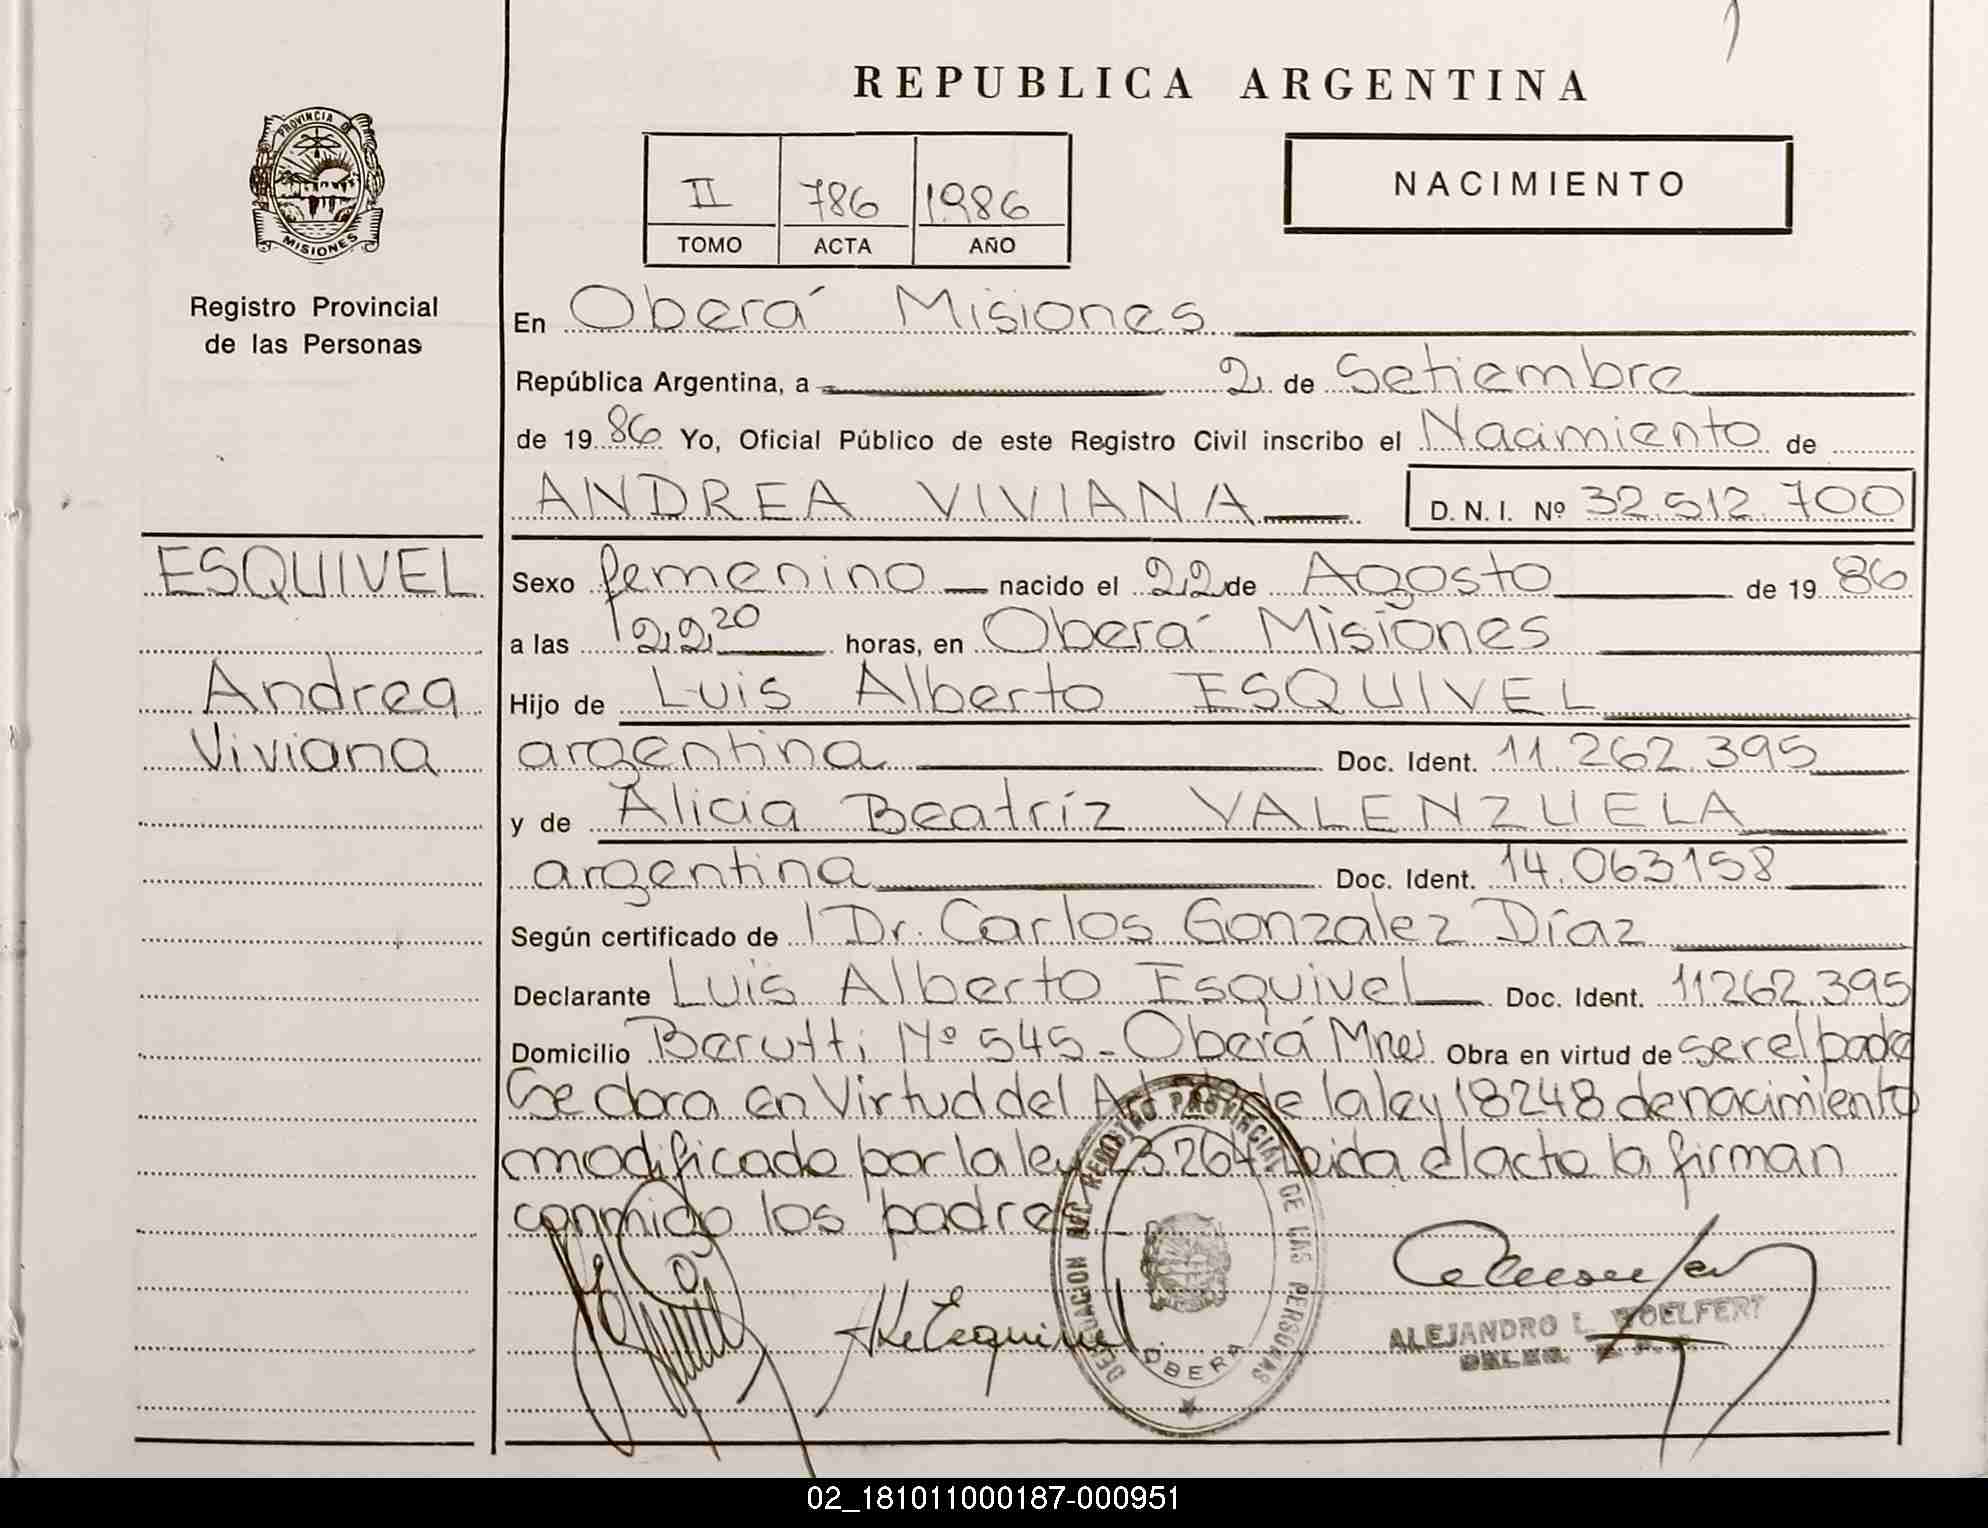 REPUBLICA ARGENTINA
PROVINCIA DE MISIONES
II 786 1986
TOMO ACTA AÑO
NACIMIENTO
Registro Provincial
de las Personas
ESQUIVEL
Andrea
Viviana
En Oberá Misiones
República Argentina, a 2 de Setiembre
de 1986 Yo, Oficial Público de este Registro Civil inscribo el Nacimiento de
ANDREA VIVIANA D.N.I. Nº 32.512.700
Sexo femenino nacido el 22 de Agosto de 1986
a las 22,20 horas, en Oberá Misiones
Hijo de Luis Alberto ESQUIVEL
argentina Doc. Ident. 11.262.395
y de Alicia Beatríz VALENZUELA
argentina Doc. Ident. 14.063.158
Según certificado de Dr. Carlos Gonzalez Díaz
Declarante Luis Alberto Esquivel Doc. Ident. 11.262.395
Domicilio Berutti Nº 545 - Oberá Mnes Obra en virtud de ser el padre
en Virtud del de la ley 18248 de nacimiento
modificado por la ley 23.264 Leida el acta la firman
conmigo los padres
Esquivel
DELEGACION DEL REGISTRO PROVINCIAL DE LAS PERSONAS
OBERA
ALEJANDRO L. WOELFERT
DELEG. R. P. P.
02_181011000187-000951